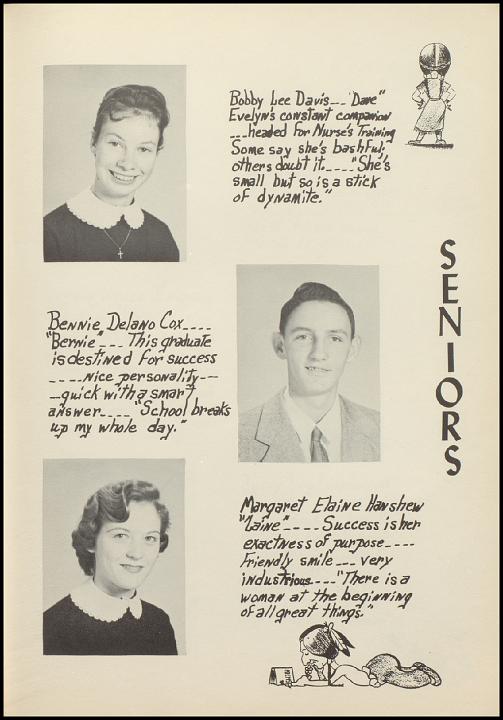 Bobby Lee Davis__ "Dave"
Evelyn's constant companion
___headed for Nurse's Training
Some say she's bashful;
others doubt it.____"She's
small but so is a stick
of dynamite."
SENIORS
Bennie Delano Cox____
"Bernie"___ This graduate
is destined for success
____Nice personality--
--quick with a smart
answer____ "School breaks
up my whole day."
Margaret Elaine Hanshew
"Laine"____Success is her
exactness of purpose____
Friendly smile___ very
industrious____"There is a
woman at the beginning
of all great things."